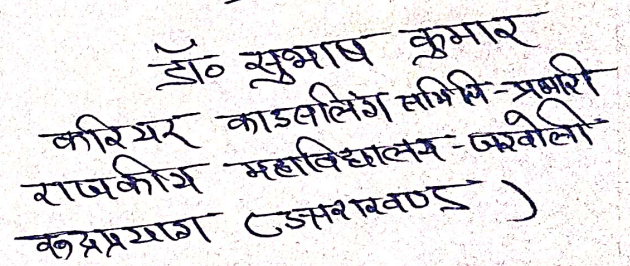 डॉ० सुभाष कुमार
करियर काउंसलिंग समिति-प्रभारी
राजकीय महाविद्यालय-जखोली
रूद्रप्रयाग (उत्तराखण्ड)